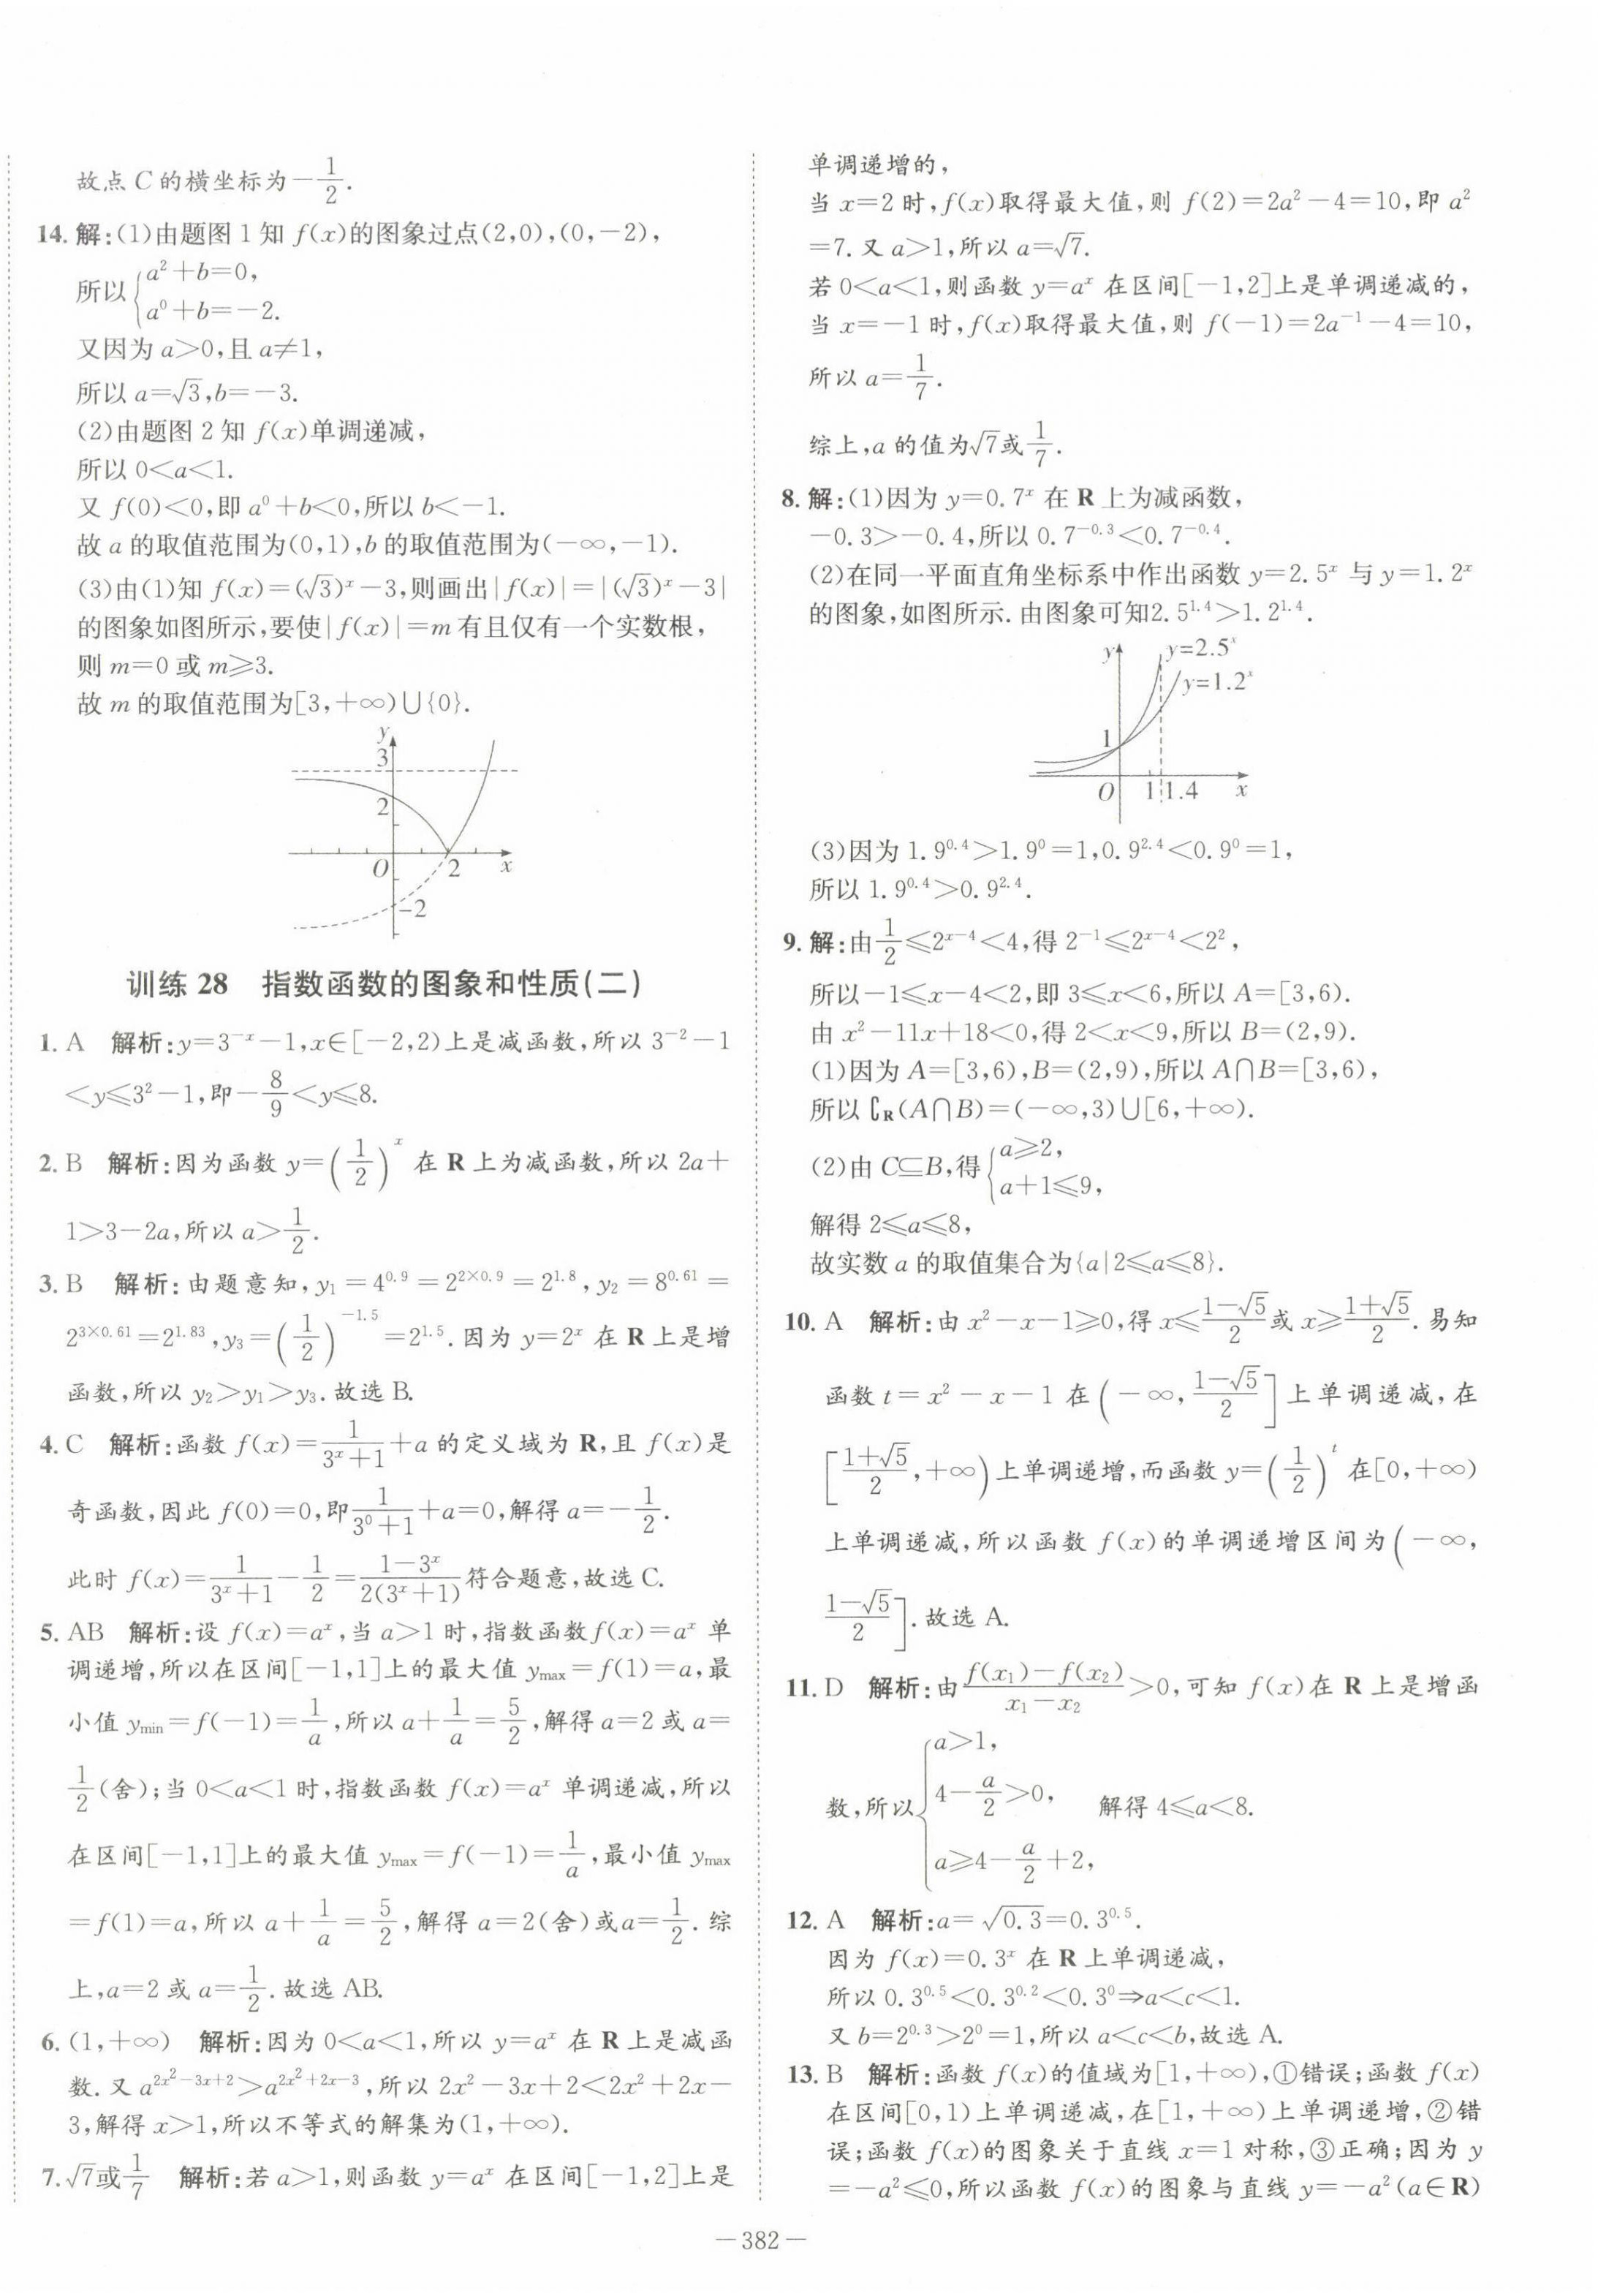 故点 C 的横坐标为 −1/2.
14. 解:(1)由题图 1 知 f(x)的图象过点(2,0),(0,−2),
所以{a²+b=0,
a⁰+b=−2.
又因为 a>0,且 a≠1,
所以 a=√3,b=−3.
(2)由题图 2 知 f(x)单调递减,
所以 0<a<1.
又 f(0)<0,即 a⁰+b<0,所以 b<−1.
故 a 的取值范围为(0,1),b 的取值范围为(−∞,−1).
(3)由(1)知 f(x)=(√3)ˣ−3,则画出|f(x)|=|(√3)ˣ−3|
的图象如图所示,要使|f(x)|=m 有且仅有一个实数根,
则 m=0 或 m⩾3.
故 m 的取值范围为[3,+∞)∪{0}.
y
3
2
O 2 x
−2
训练 28 指数函数的图象和性质(二)
1. A 解析:y=3⁻ˣ−1,x∈[−2,2)上是减函数,所以 3⁻²−1
<y⩽3²−1,即−8/9<y⩽8.
2. B 解析:因为函数 y=(1/2)ˣ 在 R 上为减函数,所以 2a+
1>3−2a,所以 a>1/2.
3. B 解析:由题意知,y₁=4^0.9=2^(2×0.9)=2^1.8,y₂=8^0.61=
2^(3×0.61)=2^1.83,y₃=(1/2)^(−1.5)=2^1.5.因为 y=2ˣ 在 R 上是增
函数,所以 y₂>y₁>y₃.故选 B.
4. C 解析:函数 f(x)=1/(3ˣ+1)+a 的定义域为 R,且 f(x)是
奇函数,因此 f(0)=0,即1/(3⁰+1)+a=0,解得 a=−1/2.
此时 f(x)=1/(3ˣ+1)−1/2=(1−3ˣ)/(2(3ˣ+1))符合题意,故选 C.
5. AB 解析:设 f(x)=aˣ,当 a>1 时,指数函数f(x)=aˣ 单
调递增,所以在区间[−1,1]上的最大值 ymax=f(1)=a,最
小值 ymin=f(−1)=1/a,所以 a+1/a=5/2,解得 a=2 或 a=
1/2(舍);当 0<a<1 时,指数函数 f(x)=aˣ 单调递减,所以
在区间[−1,1]上的最大值 ymax=f(−1)=1/a,最小值 ymax
=f(1)=a,所以 a+1/a=5/2,解得 a=2(舍)或a=1/2.综
上,a=2 或 a=1/2.故选 AB.
6. (1,+∞) 解析:因为 0<a<1,所以 y=aˣ 在 R 上是减函
数.又 a^(2x²−3x+2)>a^(2x²+2x−3),所以 2x²−3x+2<2x²+2x−
3,解得 x>1,所以不等式的解集为(1,+∞).
7. √7或1/7 解析:若 a>1,则函数 y=aˣ 在区间[−1,2]上是
单调递增的,
当 x=2 时,f(x)取得最大值,则 f(2)=2a²−4=10,即 a²
=7.又 a>1,所以 a=√7.
若 0<a<1,则函数 y=aˣ 在区间[−1,2]上是单调递减的,
当 x=−1 时,f(x)取得最大值,则 f(−1)=2a⁻¹−4=10,
所以 a=1/7.
综上,a 的值为√7或1/7.
8. 解:(1)因为 y=0.7ˣ 在 R 上为减函数,
−0.3>−0.4,所以 0.7^(−0.3)<0.7^(−0.4).
(2)在同一平面直角坐标系中作出函数 y=2.5ˣ 与 y=1.2ˣ
的图象,如图所示.由图象可知2.5^1.4>1.2^1.4.
y y=2.5ˣ
y=1.2ˣ
1
O 1 1.4 x
(3)因为 1.9^0.4>1.9⁰=1,0.9^2.4<0.9⁰=1,
所以 1.9^0.4>0.9^2.4.
9. 解:由1/2⩽2^(x−4)<4,得 2⁻¹⩽2^(x−4)<2²,
所以−1⩽x−4<2,即 3⩽x<6,所以 A=[3,6).
由 x²−11x+18<0,得 2<x<9,所以 B=(2,9).
(1)因为 A=[3,6),B=(2,9),所以 A∩B=[3,6),
所以 ∁R(A∩B)=(−∞,3)∪[6,+∞).
(2)由 C⊆B,得{a⩾2,
a+1⩽9,
解得 2⩽a⩽8,
故实数 a 的取值集合为{a|2⩽a⩽8}.
10. A 解析:由 x²−x−1⩾0,得 x⩽(1−√5)/2或 x⩾(1+√5)/2.易知
函数 t=x²−x−1 在(−∞,(1−√5)/2]上单调递减,在
[(1+√5)/2,+∞)上单调递增,而函数 y=(1/2)ᵗ 在[0,+∞)
上单调递减,所以函数 f(x)的单调递增区间为(−∞,
(1−√5)/2].故选 A.
11. D 解析:由(f(x₁)−f(x₂))/(x₁−x₂)>0,可知 f(x)在 R 上是增函
数,所以{a>1,
4−a/2>0,
a⩾4−a/2+2,
解得 4⩽a<8.
12. A 解析:a=√0.3=0.3^0.5.
因为 f(x)=0.3ˣ 在 R 上单调递减,
所以 0.3^0.5<0.3^0.2<0.3⁰⇒a<c<1.
又 b=2^0.3>2⁰=1,所以 a<c<b,故选 A.
13. B 解析:函数 f(x)的值域为[1,+∞),①错误;函数 f(x)
在区间[0,1)上单调递减,在[1,+∞)上单调递增,②错
误;函数 f(x)的图象关于直线 x=1 对称,③正确;因为 y
=−a²⩽0,所以函数 f(x)的图象与直线 y=−a²(a∈R)
— 382 —